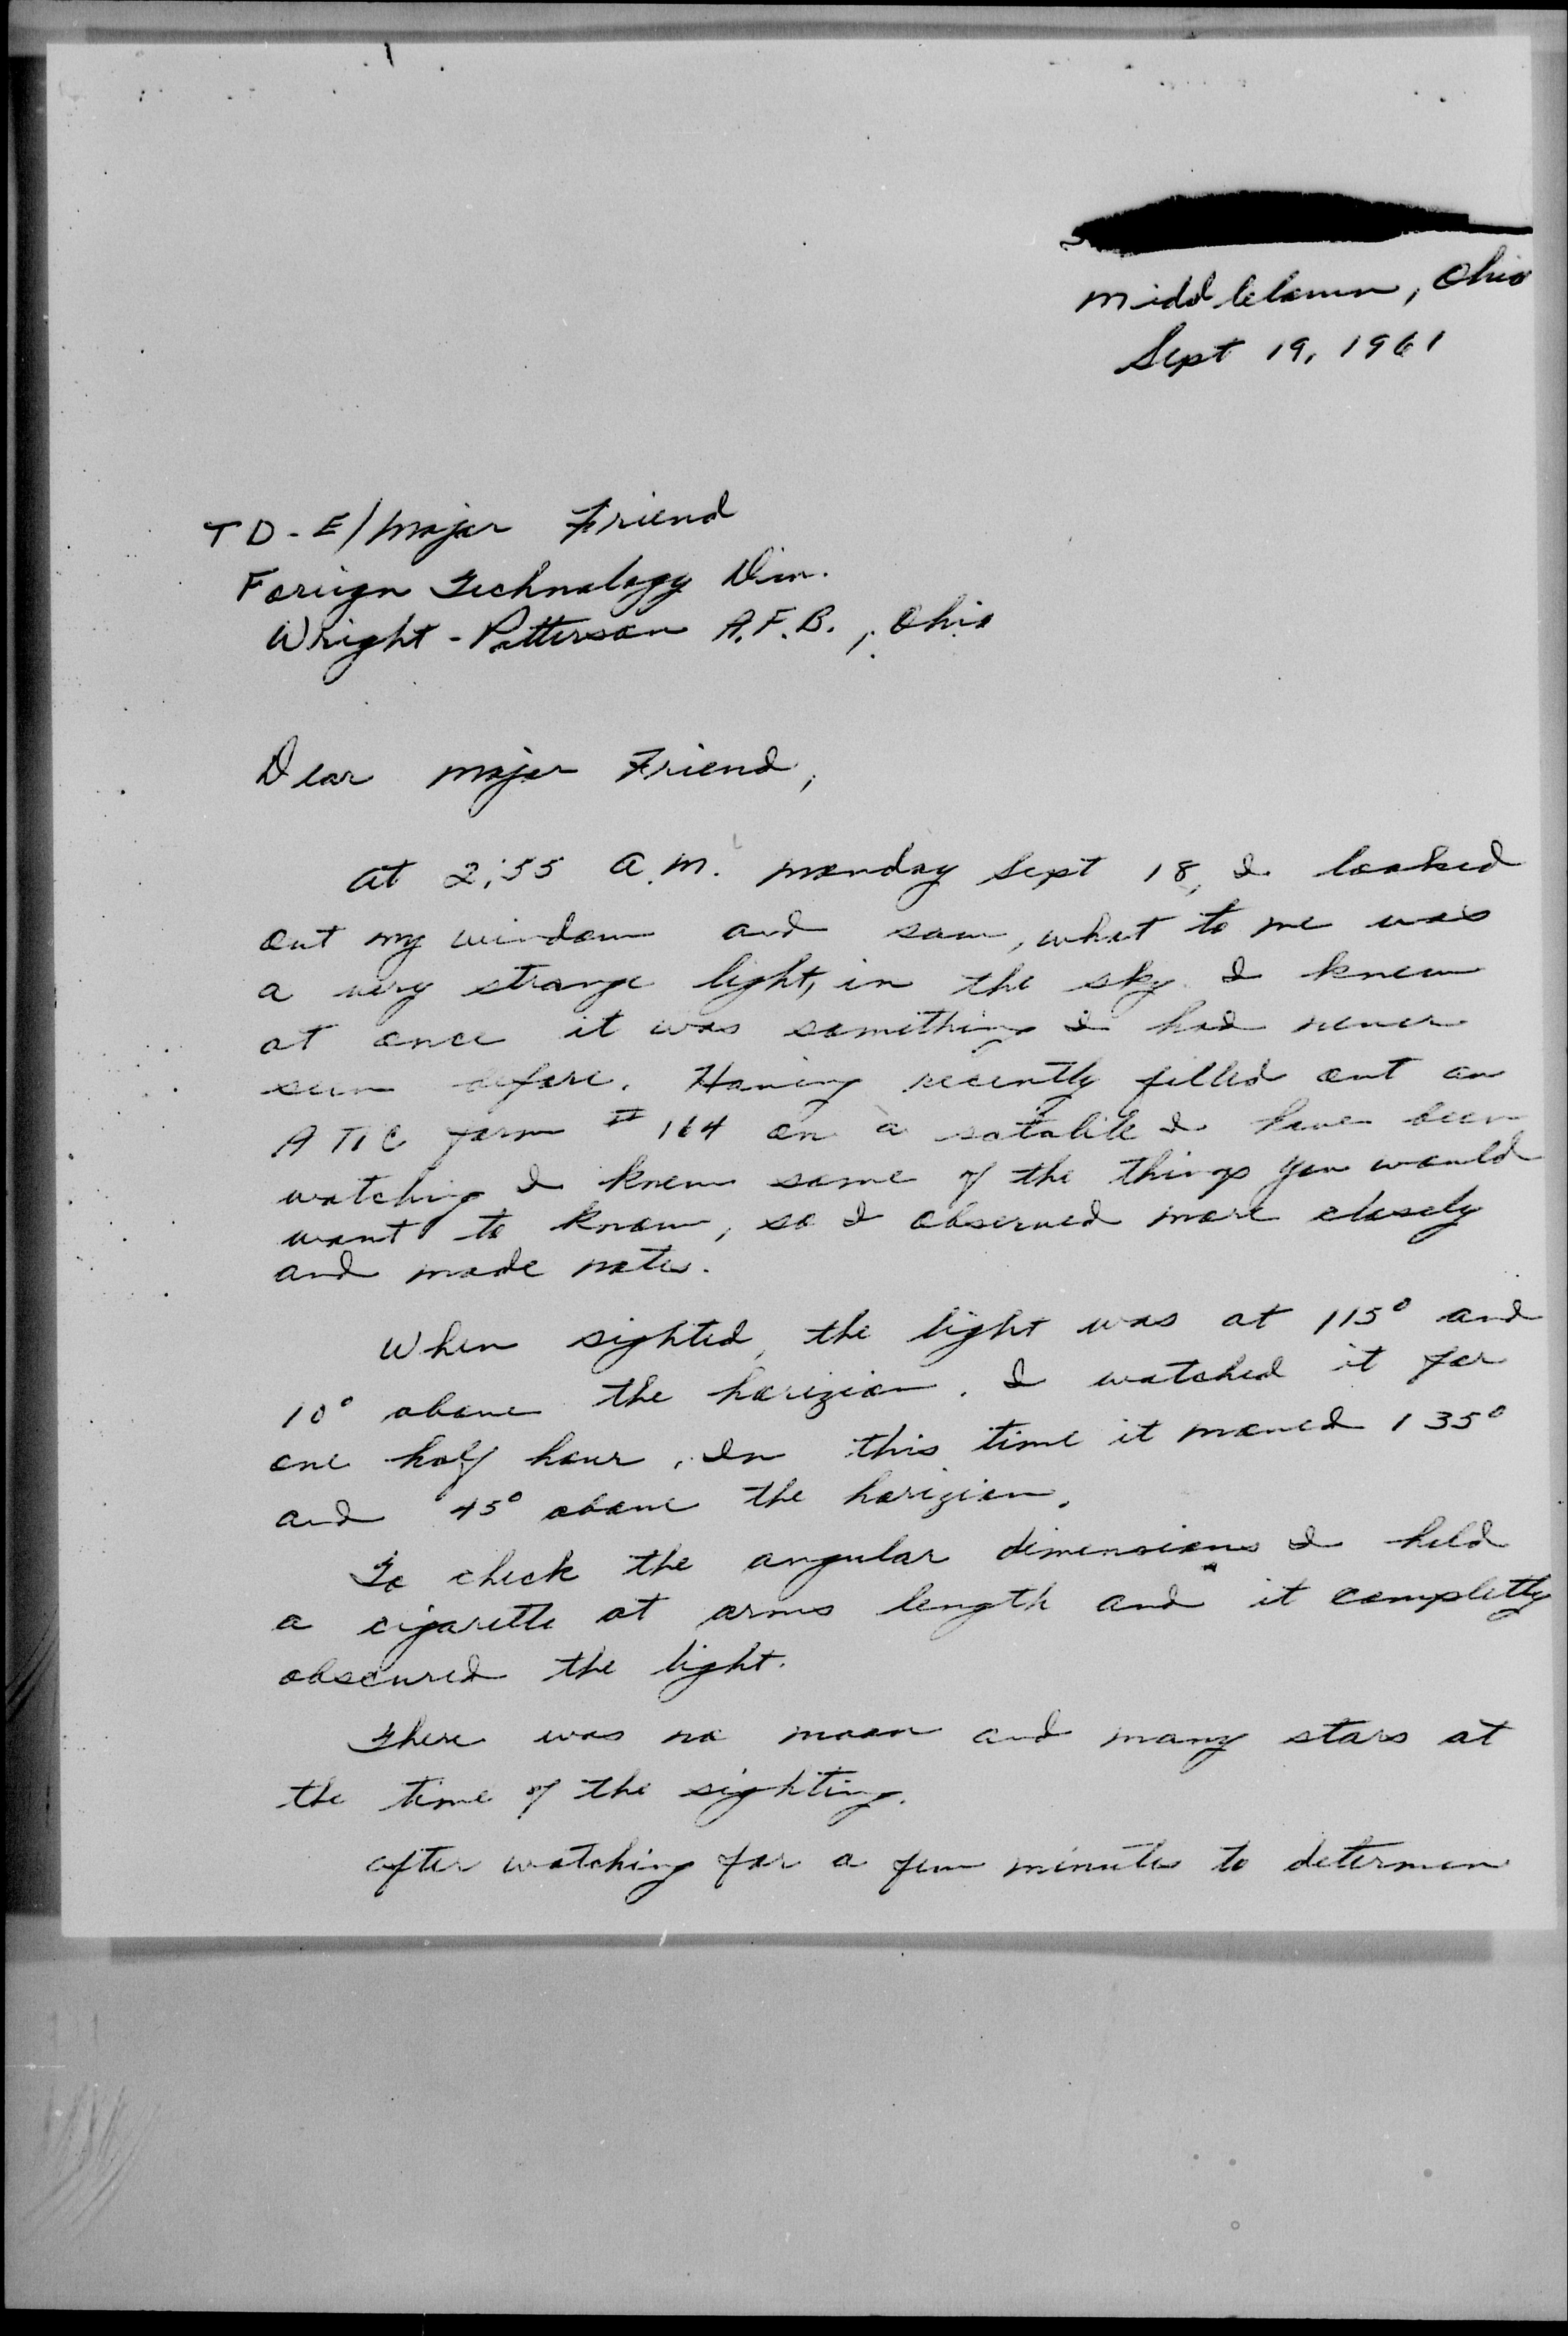 Middletown, Ohio
Sept 19, 1961
TD-E/Major Friend
Foriegn Technology Div.
Wright-Patterson A.F.B., Ohio
Dear Major Friend,
At 2:55 A.M. Monday Sept 18, I looked
out my window and saw, what to me was
a very strange light, in the sky. I knew
at once it was something I had never
seen before. Having recently filled out an
ATIC form # 164 on a satalite I have been
watching I knew some of the things you would
want to know, so I observed more closely
and made notes.
When sighted, the light was at 115° and
10° above the horizion. I watched it for
one half hour. In this time it moved 135°
and 45° above the horizion.
To check the angular dimensions I held
a cigarette at arms length and it completly
obscured the light.
There was no moon and many stars at
the time of the sighting.
After watching for a few minutes to determen